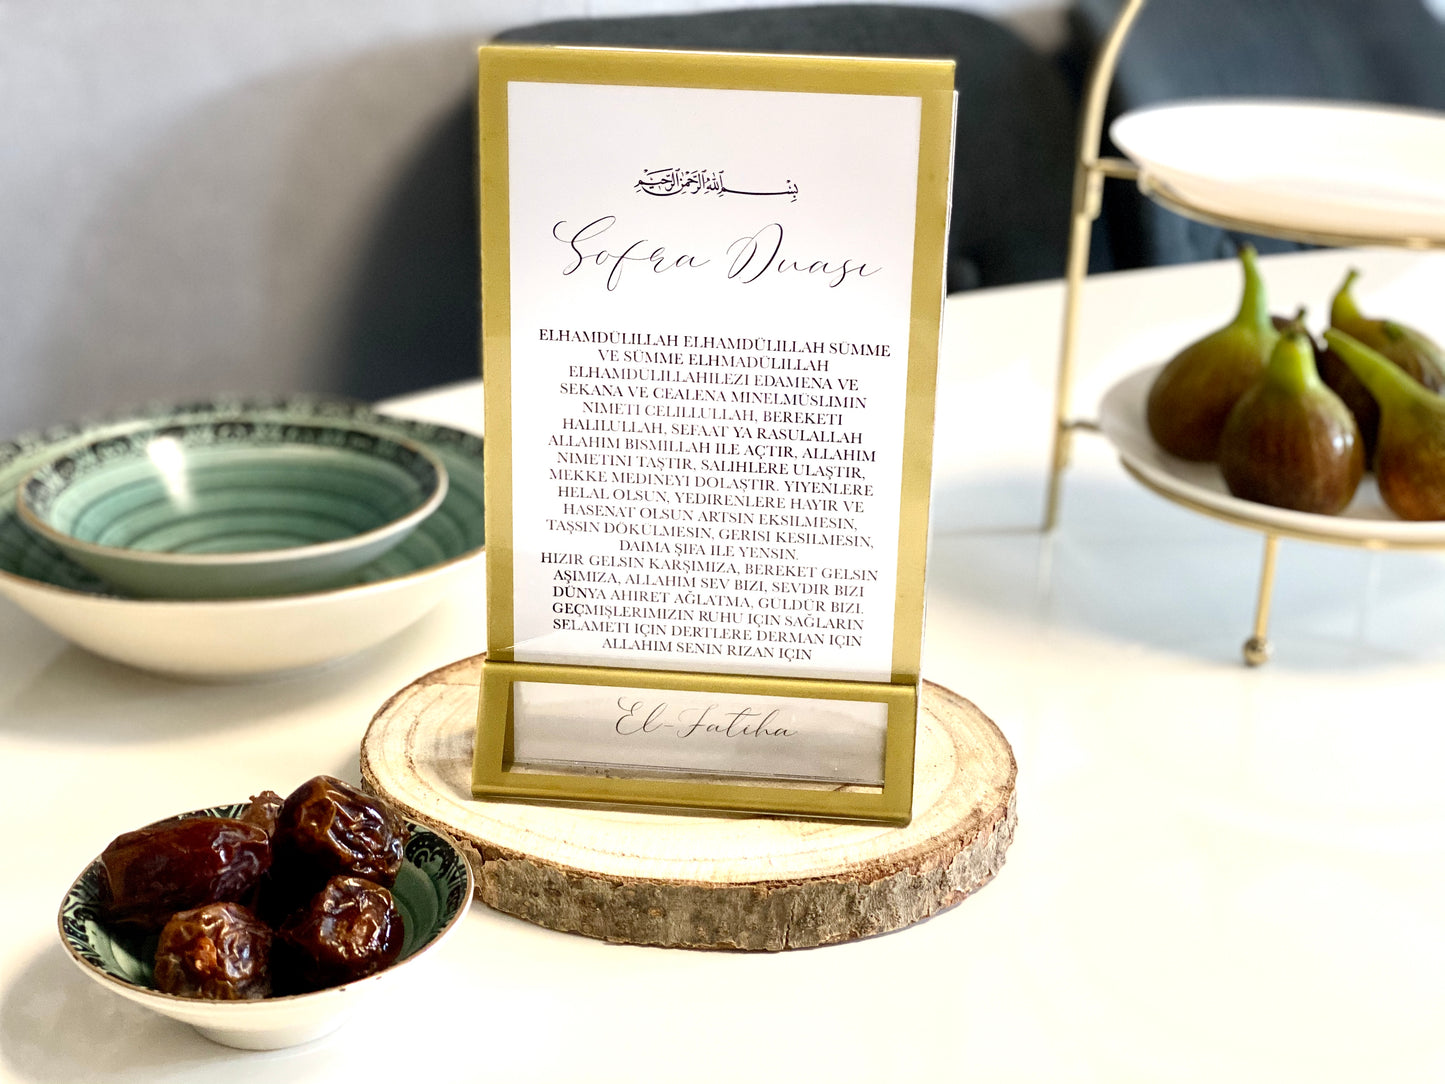 بِسْمِ اللهِ الرَّحْمٰنِ الرَّحِيْمِ
Sofra Duası
ELHAMDÜLILLAH ELHAMDÜLILLAH SÜMME
VE SÜMME ELHMADÜLILLAH
ELHAMDÜLILLAHILEZI EDAMENA VE
SEKANA VE CEALENA MINELMÜSLIMIN
NIMETI CELILLULLAH, BEREKETI
HALILULLAH, SEFAAT YA RASULALLAH
ALLAHIM BISMILLAH ILE AÇTIR, ALLAHIM
NIMETINI TAŞTIR, SALIHLERE ULAŞTIR,
MEKKE MEDINEYI DOLAŞTIR. YIYENLERE
HELAL OLSUN, YEDIRENLERE HAYIR VE
HASENAT OLSUN ARTSIN EKSILMESIN,
TAŞSIN DÖKÜLMESIN, GERISI KESILMESIN,
DAIMA ŞIFA ILE YENSIN.
HIZIR GELSIN KARŞIMIZA, BEREKET GELSIN
AŞIMIZA, ALLAHIM SEV BIZI, SEVDIR BIZI
DÜNYA AHIRET AĞLATMA, GÜLDÜR BIZI.
GEÇMIŞLERIMIZIN RUHU IÇIN SAĞLARIN
SELAMETI IÇIN DERTLERE DERMAN IÇIN
ALLAHIM SENIN RIZAN IÇIN
El-Fatiha